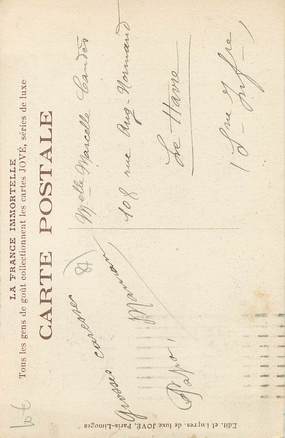 LA FRANCE IMMORTELLE
Tous les gens de goût collectionnent les cartes JOVÉ, séries de luxe
CARTE POSTALE
Grosses caresses à
Maman
Papa!
Melle Marcelle Candès
108 rue Aug-Normand
Le Havre
(Sne Infre)
Edit. et Impres. de luxe JOVÉ, Paris-Limoges